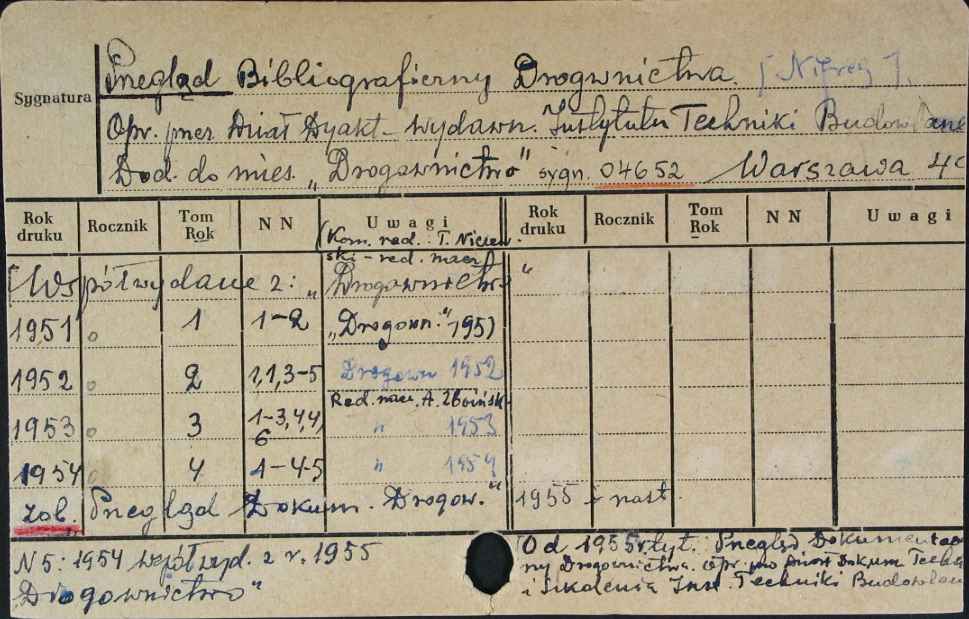 Sygnatura
Przegląd Bibliograficzny Drogownictwa.
Opr. przez Dział Dyskt-wydawn. Instytutu Techniki Budowlanej
Dod. do mies. „Drogownictwo" sygn. 04652 Warszawa 4°
Rok druku | Rocznik | Tom Rok | N N | Uwagi | Rok druku | Rocznik | Tom Rok | N N | Uwagi
(Kom. red.: T. Niczew-
ski - red. nacz.
[Współwydane z: „Drogownictw."
1951 | 1 | 1-2 | „Drogown." 1951
1952 | 2 | 1,1,3-5 | Drogown 1952
Red. nacz. A. Zboińsk-
1953 | 3 | 1-3,4,4, 6 | " 1953
1954 | 4 | 1-4-5 | " 1954
zob. Przegląd Dokum. Drogow." 1955 i nast.
N 5: 1954 współwyd. z r. 1955
Drogownictwo"
Od 1955 r tyt. Przegląd Dokumentac
ny Drogownictwa. Opr. przez Dział Dokum Techn
i Szkolenia Inst. Techniki Budowlan